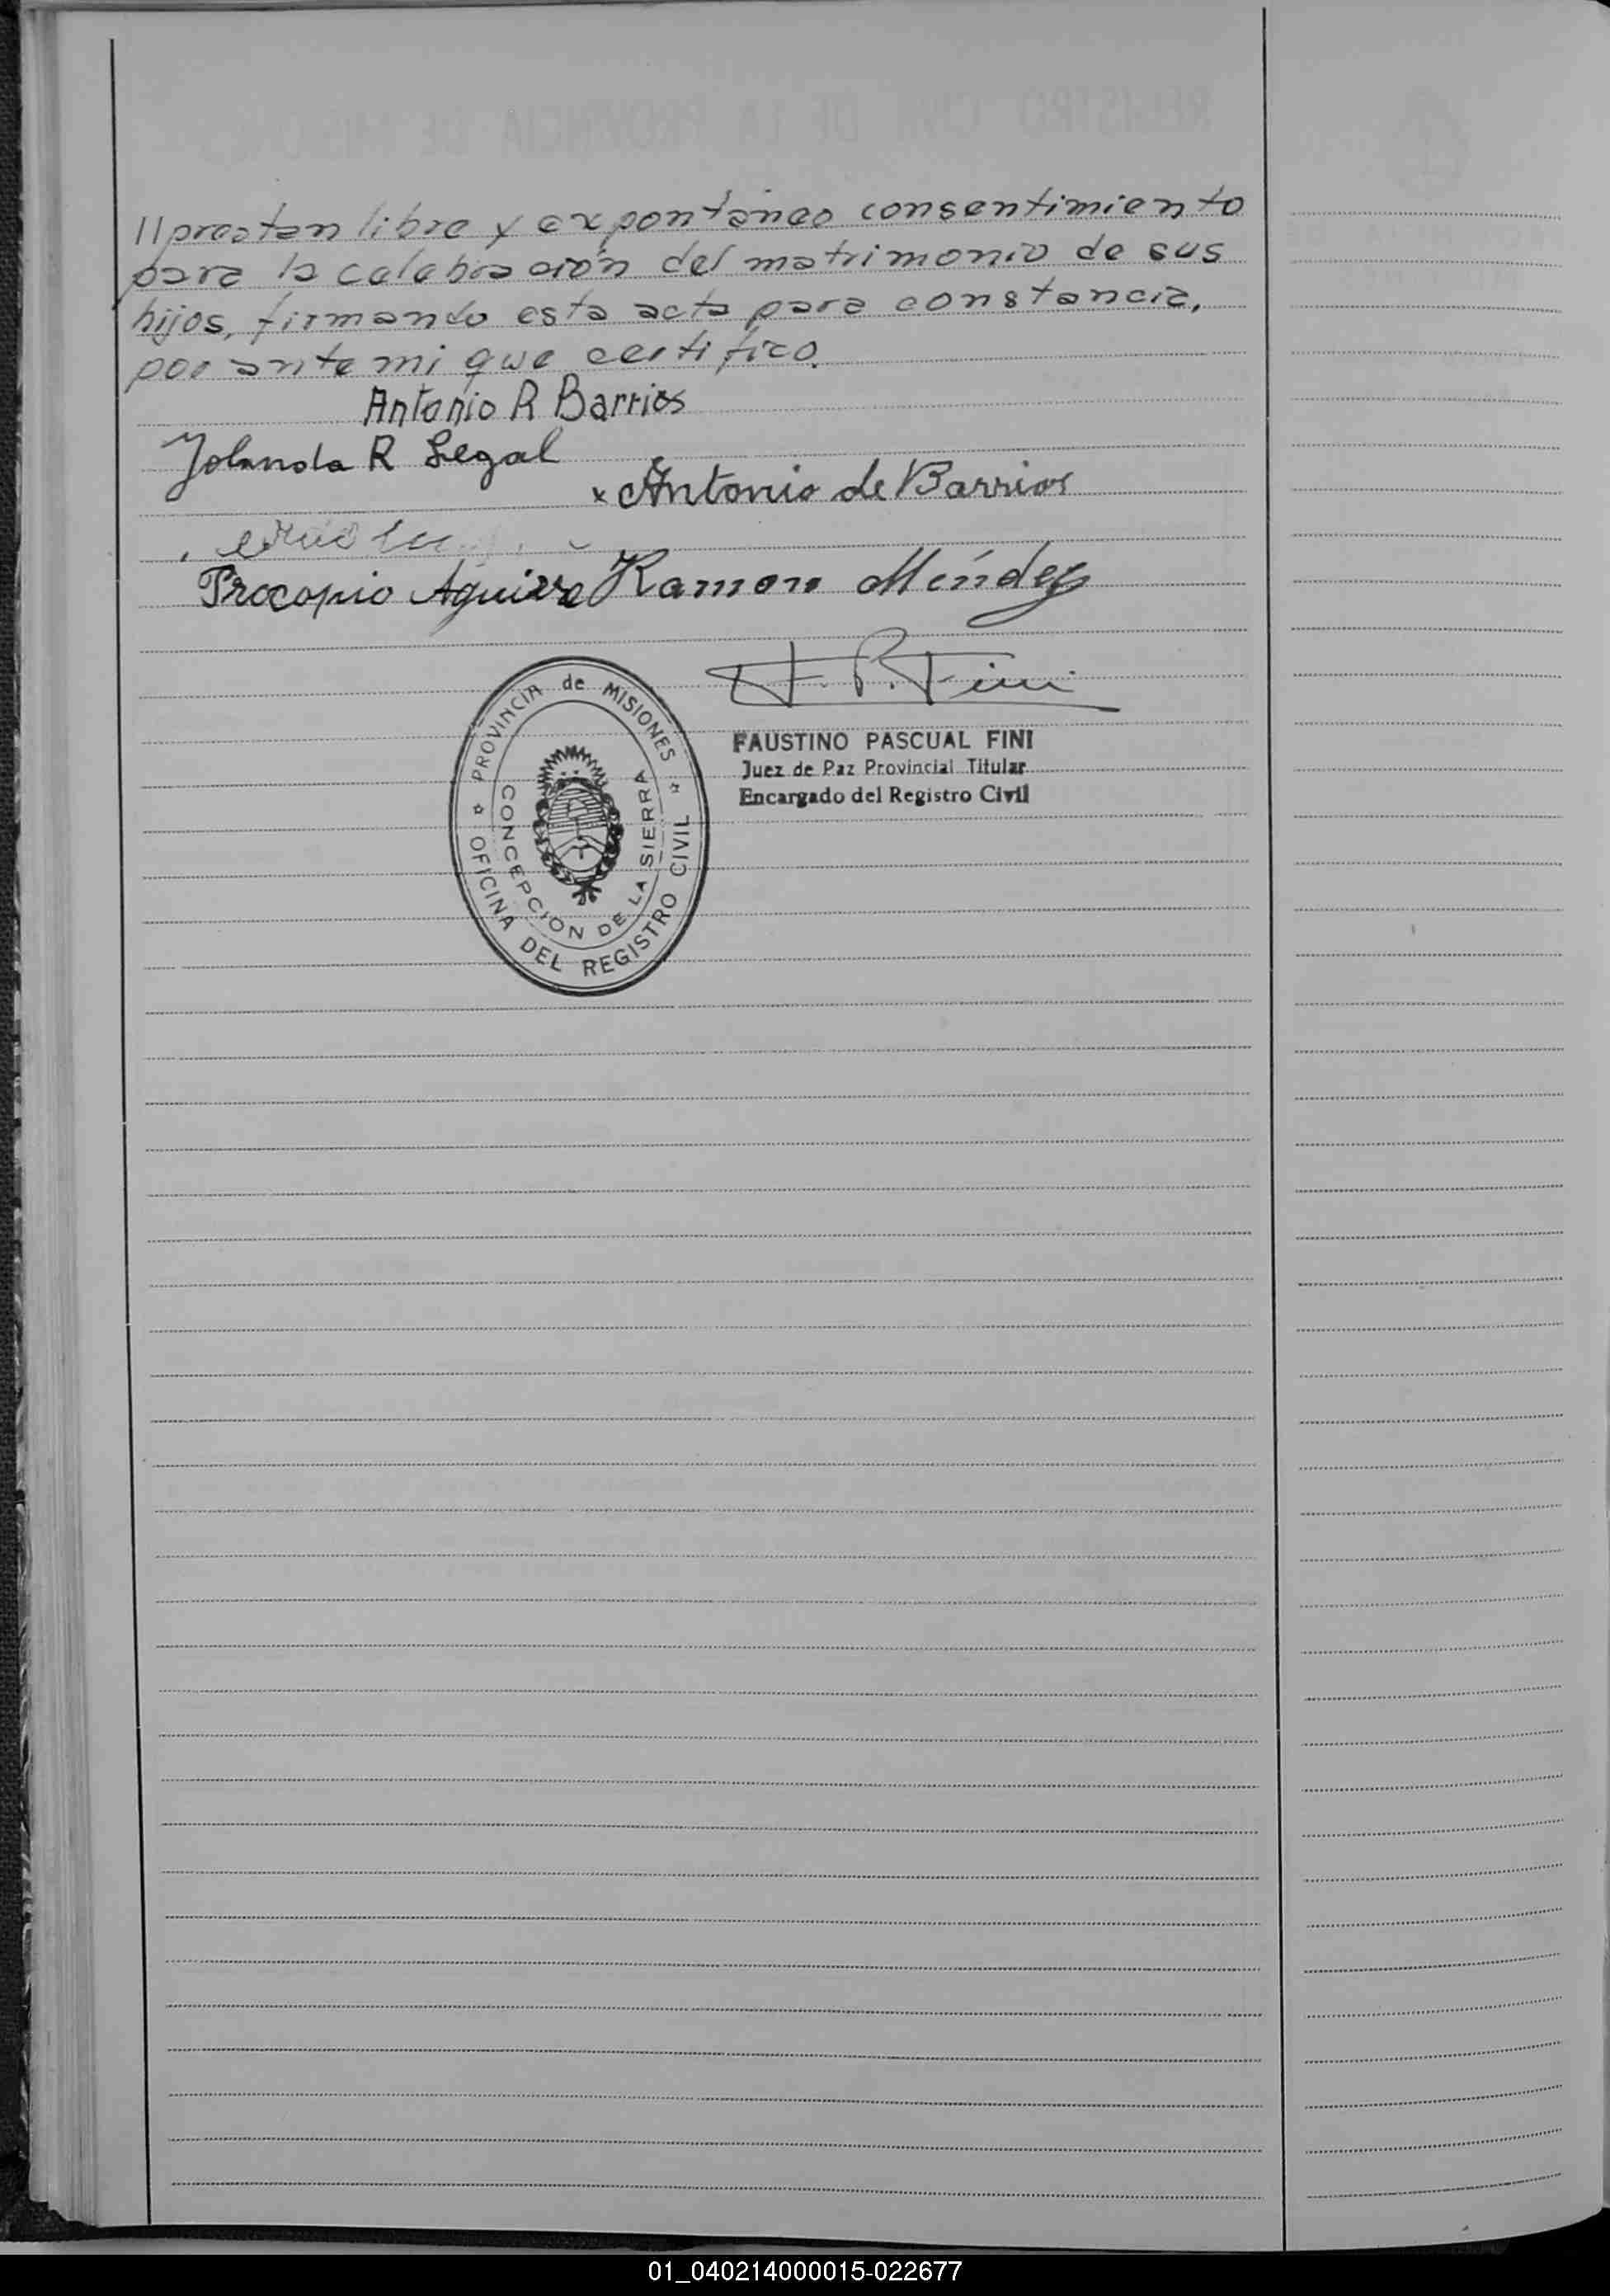 //prestan libre y expontáneo consentimiento
para la celebración del matrimonio de sus
hijos, firmando esta acta para constancia,
por ante mi que certifico.
Antonio R Barrios
Yolanda R Legal
x Antonio de Barrios
Procopio Aguirre Ramon Méndez
F. P. Fini
PROVINCIA de MISIONES
OFICINA DEL REGISTRO CIVIL
CONCEPCION DE LA SIERRA
FAUSTINO PASCUAL FINI
Juez de Paz Provincial Titular
Encargado del Registro Civil
01_040214000015-022677